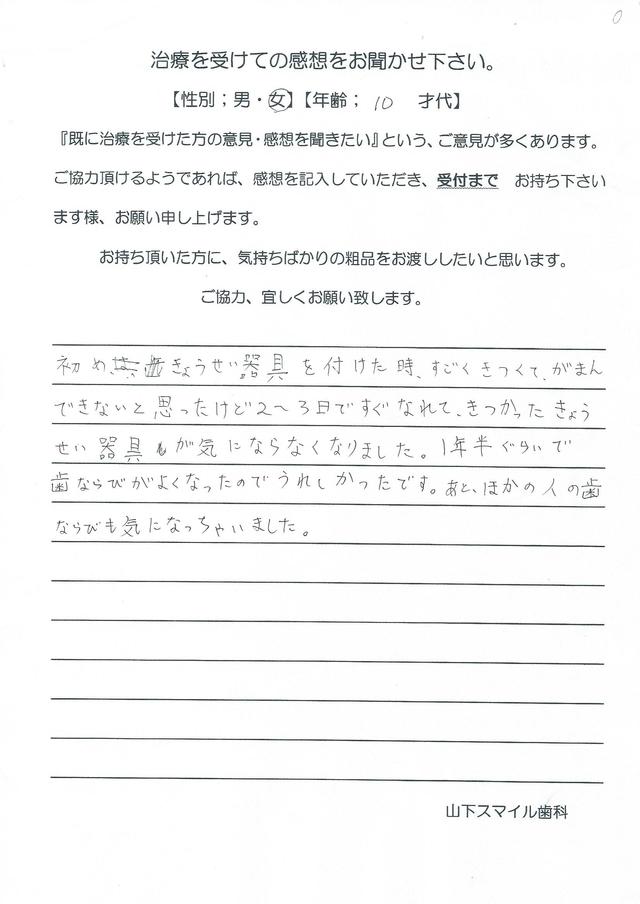 0
治療を受けての感想をお聞かせ下さい。
【性別；男・女】【年齢； 10 才代】
『既に治療を受けた方の意見・感想を聞きたい』という、ご意見が多くあります。
ご協力頂けるようであれば、感想を記入していただき、受付まで お持ち下さい
ます様、お願い申し上げます。
お持ち頂いた方に、気持ちばかりの粗品をお渡ししたいと思います。
ご協力、宜しくお願い致します。
初め、歯きょうせい器具を付けた時、すごくきつくて、がまん
できないと思ったけど2〜3日ですぐなれて、きつかったきょう
せい器具が気にならなくなりました。1年半ぐらいで
歯ならびがよくなったのでうれしかったです。あと、ほかの人の歯
ならびも気になっちゃいました。
山下スマイル歯科